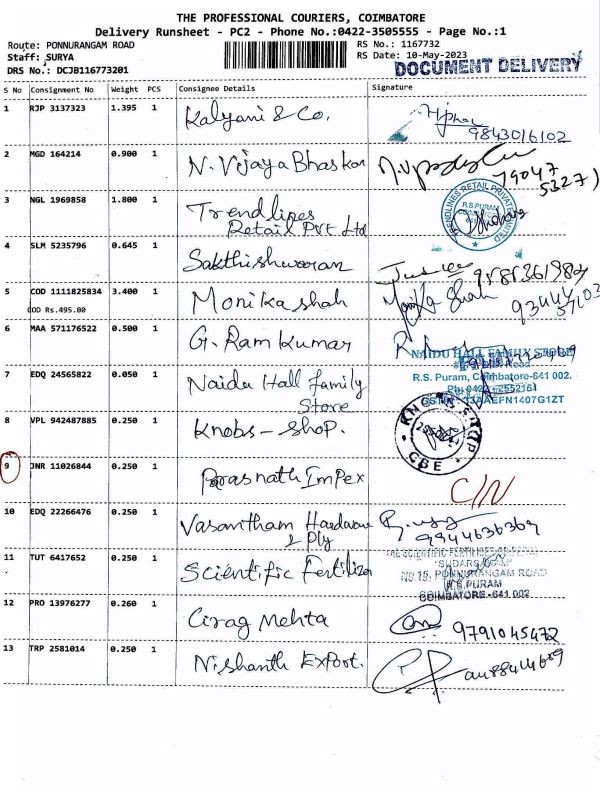 THE PROFESSIONAL COURIERS, COIMBATORE
Delivery Runsheet - PC2 - Phone No.:0422-3505555 - Page No.:1
Route: PONNURANGAM ROAD
RS No.: 1167732
Staff: SURYA
RS Date: 10-May-2023
DRS No.: DCJB116773201
DOCUMENT DELIVERY
S No Consignment No Weight PCS Consignee Details Signature
1 RJP 3137323 1.395 1 Kalyani & Co.
9843016102
2 MGD 164214 0.900 1 N. Vijaya Bhaskar
79047
5327)
3 NGL 1969858 1.800 1 Trendlines
Retail Pvt Ltd
TRENDLINES RETAIL PRIVATE LIMITED
R.S.PURAM
4 SLM 5235796 0.645 1 Sakthishwaran
5 COD 1111825834 3.400 1 Monika shah Monika Shah
COD Rs.495.00
6 MAA 571176522 0.500 1 G. Ram Kumar
NAIDU HALL FAMILY STORE
R.S. Puram, Coimbatore-641 002.
7 EDQ 24565822 0.050 1 Naidu Hall family
Store
8 VPL 942487885 0.250 1 Knobs - Shop.
CBE
9 JNR 11026844 0.250 1 Parasnath Impex
C/N
10 EDQ 22266476 0.250 1 Vasantham Hardware
& Ply
9944636369
11 TUT 6417652 0.250 1 Scientific Fertilizer
NO.15, PONNURANGAM ROAD
R.S.PURAM
COIMBATORE-641 002
12 PRO 13976277 0.260 1 Cirag Mehta
9791045472
13 TRP 2581014 0.250 1 Nishanth Export.